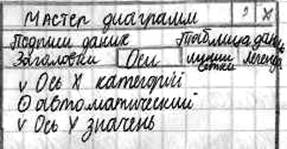 Мастер диаграмм ? X
Подписи даных Таблица даных
Заголовки Оси линии сетки Легенда
v Ось X категорий
О автоматический
v Ось Y значень